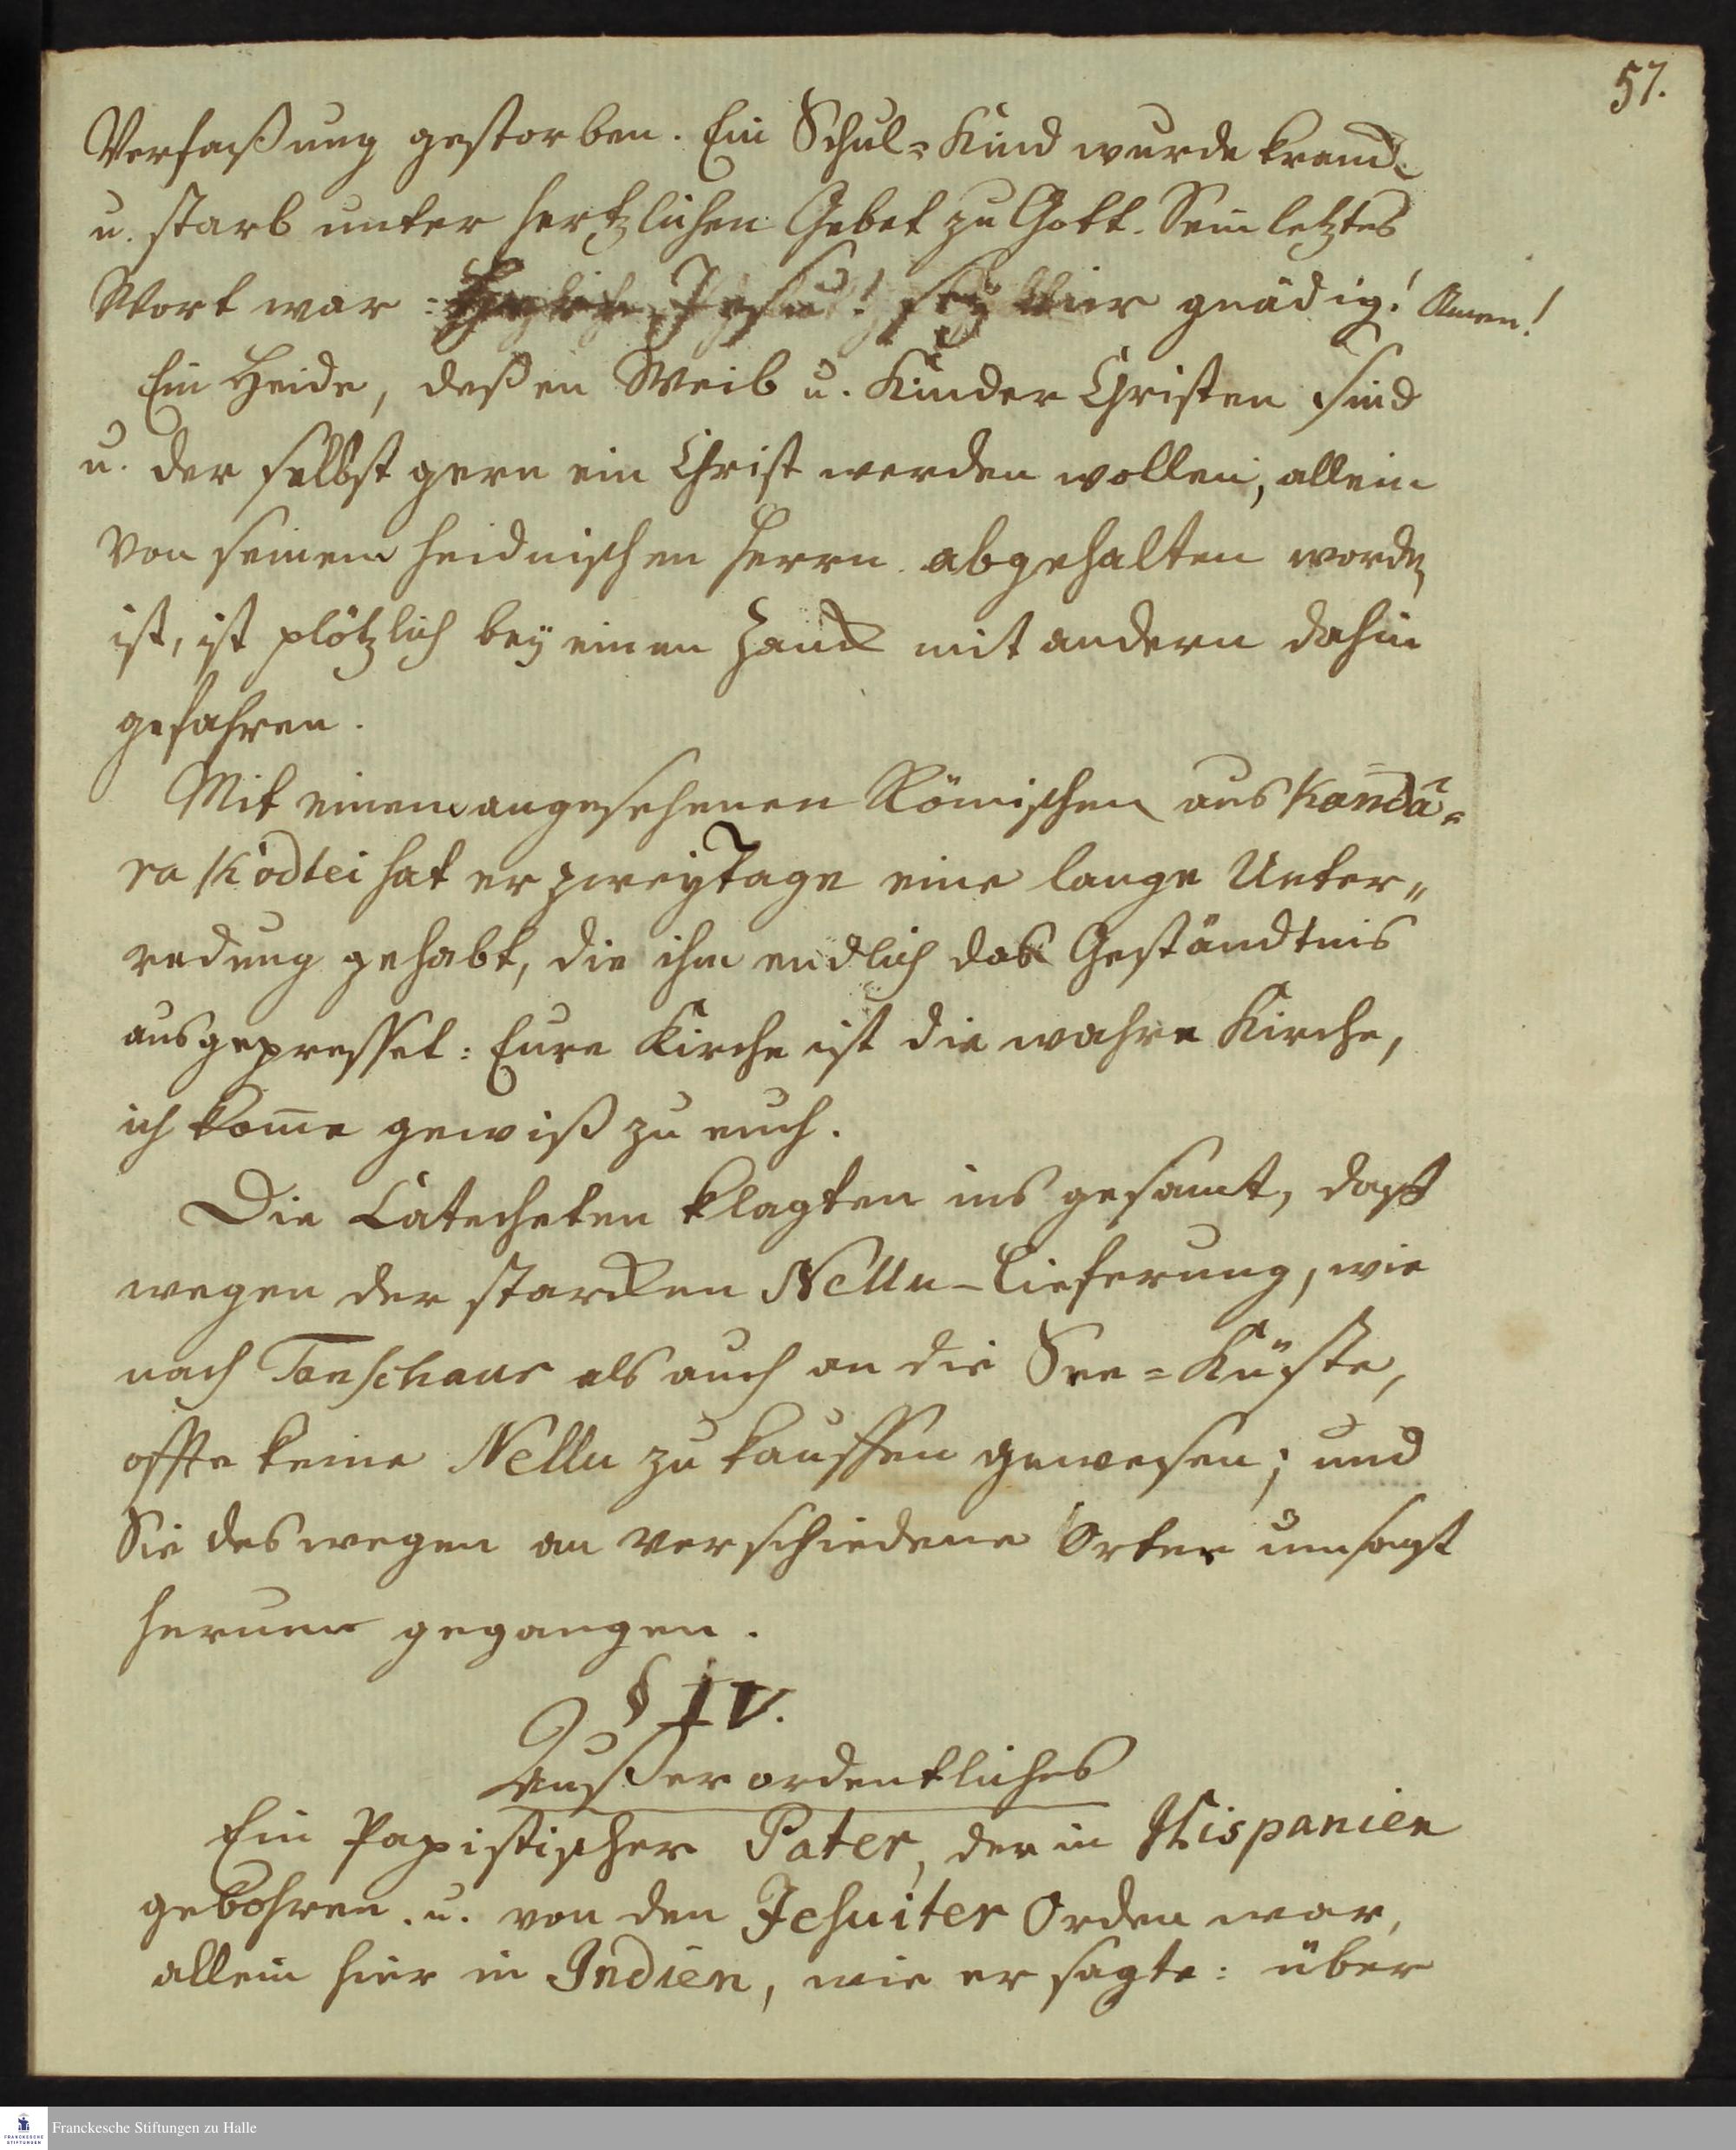 57.
Verfaßung gestorben. Ein Schul-Kind wurde kranck
u. starb unter hertzlichen Gebet zu Gott. Sein letztes
Wort war: Jesu! sey mir gnädig! Amen!
Ein Heide, deßen Weib u. Kinder Christen sind
u. der selbst gern ein Christ werden wollen, allein
von seinem heidnischen Herrn abgehalten worden
ist, ist plötzlich bey einen Zanck mit andern dahin
gefahren.
Mit einem angesehenen Römischen aus Kandā-
ra Kōdtei hat er zwey Tage eine lange Unter-
redung gehabt, die ihm endlich das Geständtnis
ausgepresset: Eure Kirche ist die wahre Kirche,
ich kom̄e gewiß zu euch.
Die Catecheten klagten ins gesamt, daß
wegen der starcken Nellu-Lieferung, wie
nach Tanschaur als auch an die See-Küste,
offte keine Nellu zu kauffen gewesen; und
Sie deswegen an verschiedene Orten umsonst
herum gegangen.
§ IV.
Außerordentliches
Ein Papistischer Pater, der in Hispanien
gebohren u. von den Jesuiter Orden war,
allein hier in Indien, wie er sagte: über
Franckesche Stiftungen zu Halle
FRANCKESCHE
STIFTUNGEN